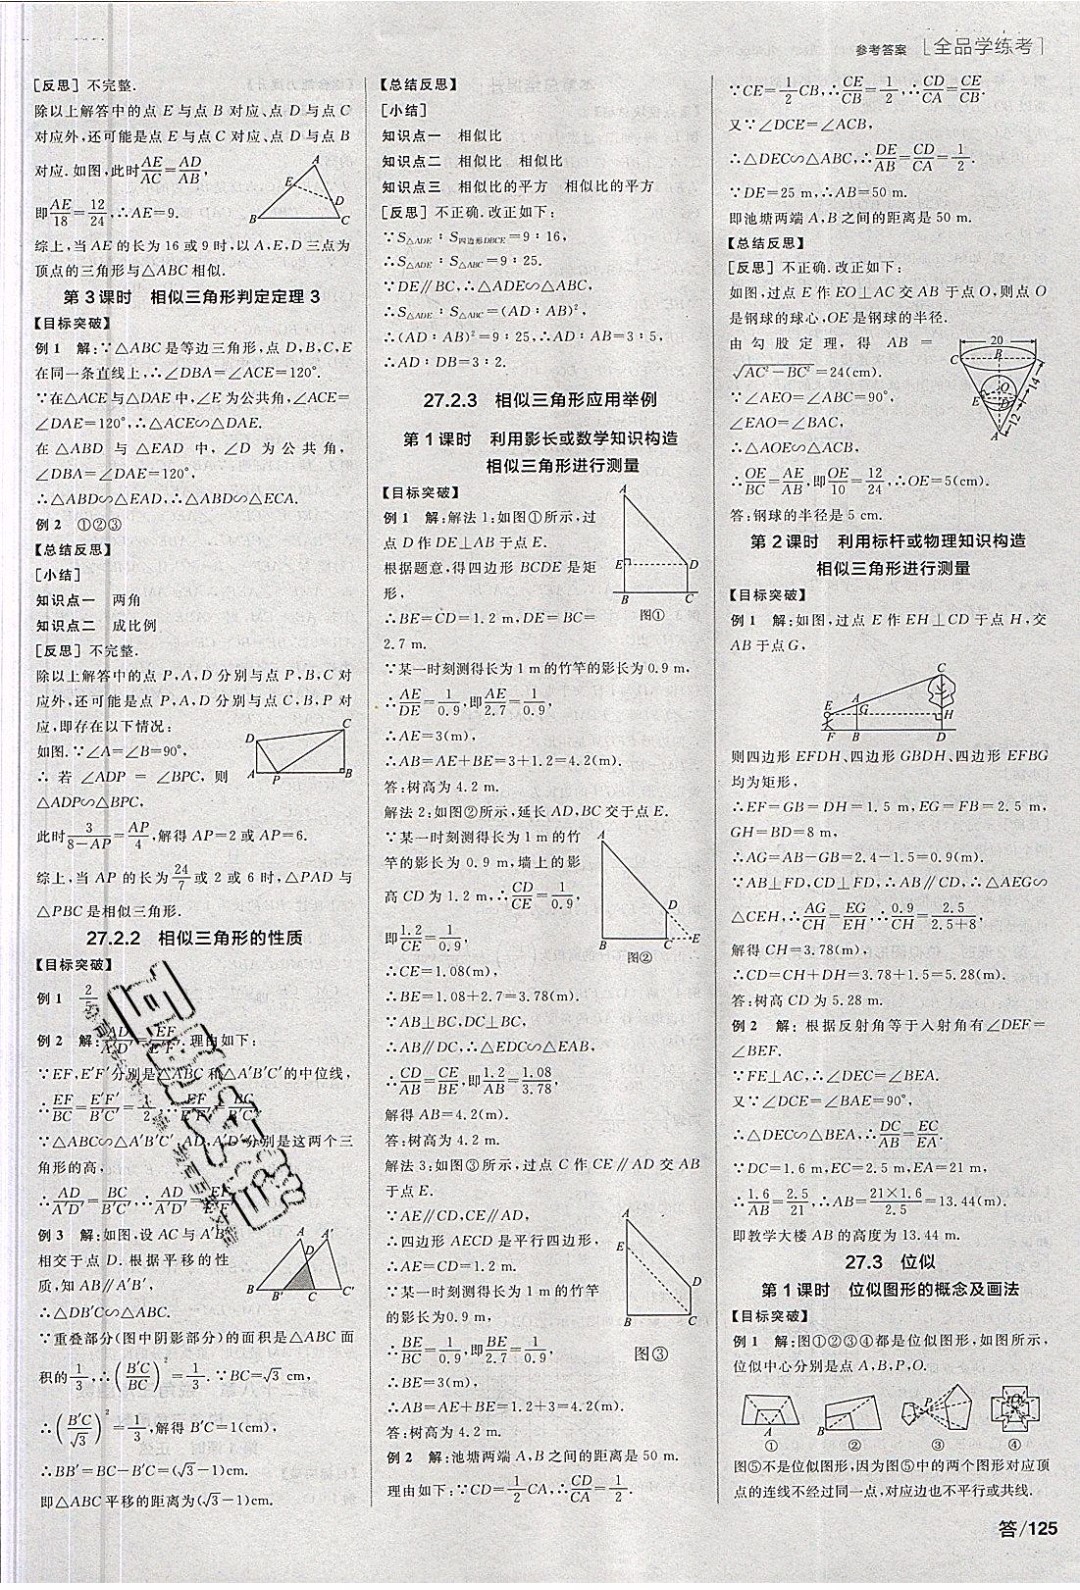 参考答案 [全品学练考]
[反思] 不完整.
除以上解答中的点 E 与点 B 对应、点 D 与点 C
对应外,还可能是点 E 与点 C 对应、点 D 与点 B
对应.如图,此时AE/AC=AD/AB,
即AE/18=12/24,∴AE=9.
A
E
D
B
C
综上,当 AE 的长为 16 或 9 时,以 A,E,D 三点为
顶点的三角形与△ABC 相似.
第 3 课时 相似三角形判定定理 3
【目标突破】
例 1 解:∵△ABC 是等边三角形,点 D,B,C,E
在同一条直线上,∴∠DBA=∠ACE=120°.
∵在△ACE 与△DAE 中,∠E 为公共角,∠ACE=
∠DAE=120°,∴△ACE∽△DAE.
在 △ABD 与 △EAD 中,∠D 为 公 共 角,
∠DBA=∠DAE=120°,
∴△ABD∽△EAD,∴△ABD∽△ECA.
例 2 ①②③
【总结反思】
[小结]
知识点一 两角
知识点二 成比例
[反思] 不完整.
除以上解答中的点 P,A,D 分别与点 P,B,C 对
应外,还可能是点 P,A,D 分别与点 C,B,P 对
应,即存在以下情况:
如图.∵∠A=∠B=90°,
∴ 若 ∠ADP = ∠BPC, 则
△ADP∽△BPC,
C
D
A
P
B
此时3/(8-AP)=AP/4,解得 AP=2 或 AP=6.
综上,当 AP 的长为24/7或 2 或 6 时,△PAD 与
△PBC 是相似三角形.
27.2.2 相似三角形的性质
【目标突破】
例 1 2/5
例 2 解:AD/A′D′=EF/E′F′.理由如下:
∵EF,E′F′分别是△ABC 和△A′B′C′的中位线,
∴EF/BC=E′F′/B′C′=1/2,∴EF/E′F′=BC/B′C′.
∵△ABC∽△A′B′C′,AD,A′D′分别是这两个三
角形的高,
∴AD/A′D′=BC/B′C′,∴AD/A′D′=EF/E′F′.
例 3 解:如图,设 AC 与 A′B′
相交于点 D.根据平移的性
质,知 AB∥A′B′,
∴△DB′C∽△ABC.
A
A′
D
B
B′
C
C′
∵重叠部分(图中阴影部分)的面积是△ABC 面
积的1/3,∴(B′C/BC)²=1/3.∵BC=√3 cm,
∴(B′C/√3)²=1/3,解得 B′C=1(cm),
∴BB′=BC-B′C=(√3-1)cm.
即△ABC 平移的距离为(√3-1)cm.
【总结反思】
[小结]
知识点一 相似比
知识点二 相似比 相似比
知识点三 相似比的平方 相似比的平方
[反思] 不正确.改正如下:
∵S△ADE∶S四边形DBCE=9∶16,
∴S△ADE∶S△ABC=9∶25.
∵DE∥BC,∴△ADE∽△ABC,
∴S△ADE∶S△ABC=(AD∶AB)²,
∴(AD∶AB)²=9∶25,∴AD∶AB=3∶5,
∴AD∶DB=3∶2.
27.2.3 相似三角形应用举例
第 1 课时 利用影长或数学知识构造
相似三角形进行测量
【目标突破】
例 1 解:解法 1:如图①所示,过
点 D 作 DE⊥AB 于点 E.
根据题意,得四边形 BCDE 是矩
形,
∴BE=CD=1.2 m,DE=BC=
2.7 m.
A
E
D
B
C
图①
∵某一时刻测得长为 1 m 的竹竿的影长为 0.9 m,
∴AE/DE=1/0.9,即AE/2.7=1/0.9,
∴AE=3(m),
∴AB=AE+BE=3+1.2=4.2(m).
答:树高为 4.2 m.
解法 2:如图②所示,延长 AD,BC 交于点 E.
∵某一时刻测得长为 1 m 的竹
竿的影长为 0.9 m,墙上的影
高 CD 为 1.2 m,∴CD/CE=1/0.9,
即1.2/CE=1/0.9,
A
D
B
C
E
图②
∴CE=1.08(m),
∴BE=1.08+2.7=3.78(m).
∵AB⊥BC,DC⊥BC,
∴AB∥DC,∴△EDC∽△EAB,
∴CD/AB=CE/BE,即1.2/AB=1.08/3.78,
解得 AB=4.2(m).
答:树高为 4.2 m.
解法 3:如图③所示,过点 C 作 CE∥AD 交 AB
于点 E.
∵AE∥CD,CE∥AD,
∴四边形 AECD 是平行四边形,
∴AE=CD=1.2 m.
∵某一时刻测得长为 1 m 的竹竿
的影长为0.9 m,
∴BE/BC=1/0.9,即BE/2.7=1/0.9,
∴BE=3(m),
A
E
D
B
C
图③
∴AB=AE+BE=1.2+3=4.2(m).
答:树高为 4.2 m.
例 2 解:池塘两端 A,B 之间的距离是 50 m.
理由如下:∵CD=1/2CA,∴CD/CA=1/2.
∵CE=1/2CB,∴CE/CB=1/2,∴CD/CA=CE/CB.
又∵∠DCE=∠ACB,
∴△DEC∽△ABC,∴DE/AB=CD/CA=1/2.
∵DE=25 m,∴AB=50 m.
即池塘两端 A,B 之间的距离是 50 m.
【总结反思】
[反思] 不正确.改正如下:
如图,过点 E 作 EO⊥AC 交 AB 于点 O,则点 O
是钢球的球心,OE 是钢球的半径.
由 勾 股 定 理, 得 AB=
√AC²-BC²=24(cm).
∵∠AEO=∠ABC=90°,
∠EAO=∠BAC,
∴△AOE∽△ACB,
20
C
B
O
E
14
12
A
∴OE/BC=AE/AB,即OE/10=12/24,∴OE=5(cm).
答:钢球的半径是 5 cm.
第 2 课时 利用标杆或物理知识构造
相似三角形进行测量
【目标突破】
例 1 解:如图,过点 E 作 EH⊥CD 于点 H,交
AB 于点 G,
C
E
A
G
H
F
B
D
则四边形 EFDH、四边形 GBDH、四边形 EFBG
均为矩形,
∴EF=GB=DH=1.5 m,EG=FB=2.5 m,
GH=BD=8 m,
∴AG=AB-GB=2.4-1.5=0.9(m).
∵AB⊥FD,CD⊥FD,∴AB∥CD,∴△AEG∽
△CEH,∴AG/CH=EG/EH,∴0.9/CH=2.5/(2.5+8),
解得 CH=3.78(m),
∴CD=CH+DH=3.78+1.5=5.28(m).
答:树高 CD 为 5.28 m.
例 2 解:根据反射角等于入射角有∠DEF=
∠BEF.
∵FE⊥AC,∴∠DEC=∠BEA.
又∵∠DCE=∠BAE=90°,
∴△DEC∽△BEA,∴DC/AB=EC/EA.
∵DC=1.6 m,EC=2.5 m,EA=21 m,
∴1.6/AB=2.5/21,∴AB=21×1.6/2.5=13.44(m).
即教学大楼 AB 的高度为 13.44 m.
27.3 位似
第 1 课时 位似图形的概念及画法
【目标突破】
例 1 解:图①②③④都是位似图形,如图所示,
位似中心分别是点 A,B,P,O.
A
B
P
O
① ② ③ ④
图⑤不是位似图形,因为图⑤中的两个图形对应顶
点的连线不经过同一点,对应边也不平行或共线.
答/125